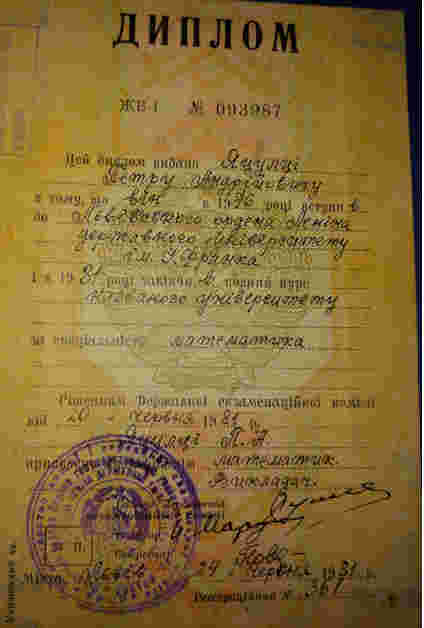 ДИПЛОМ
ЖВ-І № 093987
Цей диплом видано Яцулці
Петру Андрійовичу
в тому, що він в 1976 році вступив
до Львівського ордена Леніна
державного університету
ім. І. Франка
і в 1981 році закінчив повний курс
названого університету
за спеціальністю математика
Рішенням Державної екзаменаційної комісії
від 20 червня 1981 р.
Яцулці П. А.
математик.
Викладач.
М. П.
Ректор
Секретар
Місто Львів 24 червня 1981 р.
Реєстраційний №